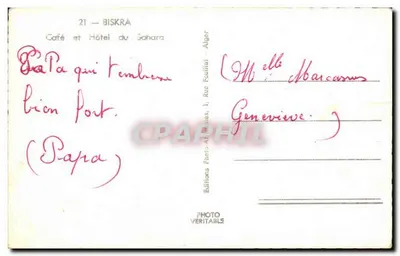 21 — BISKRA
Café et Hôtel du Sahara
PaPa qui t'embrasse
bien fort.
(Papa)
(Melle Marcanus
Geneviève.)
Editions Photo-Africaines, 1, Rue Feuillet - Alger
PHOTO
VERITABLE
CPARAMA